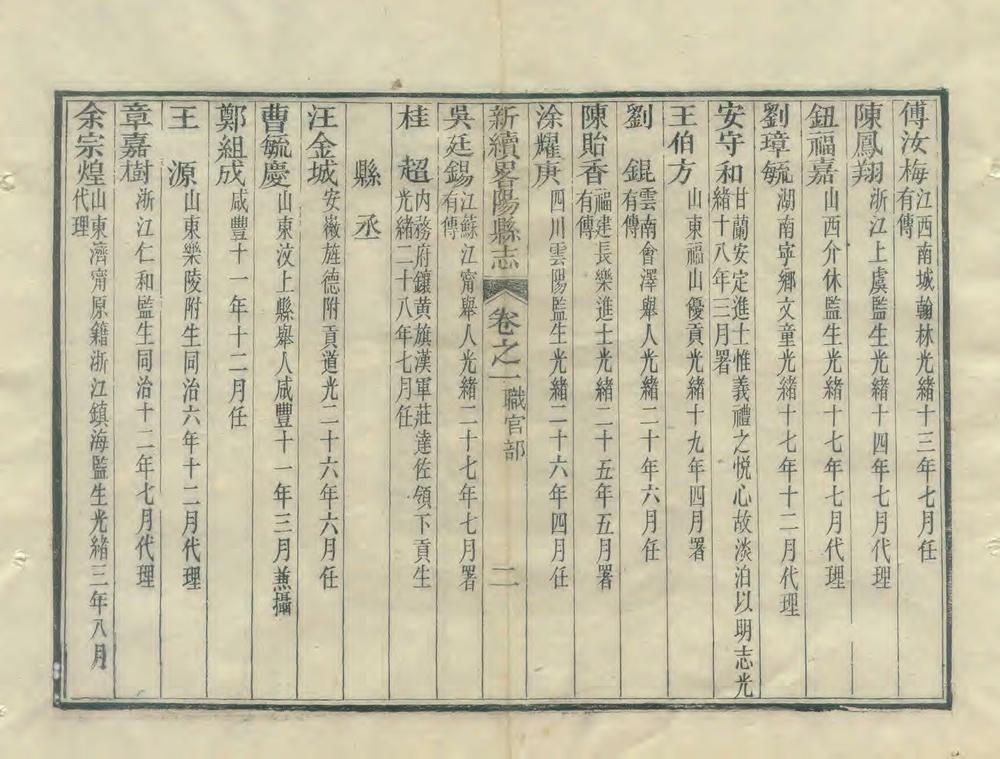 傅汝梅江西南城翰林光緒十三年七月任有傳
陳鳳翔浙江上虞監生光緒十四年七月代理
鈕福嘉山西介休監生光緒十七年七月代理
劉璋毓湖南寧鄉文童光緒十七年十二月代理
安守和甘蘭安定進士惟義禮之悅心故淡泊以明志光緒十八年三月署
王伯方山東福山優貢光緒十九年四月署
劉錕雲南會澤舉人光緒二十年六月任有傳
陳貽香福建長樂進士光緒二十五年五月署有傳
涂耀庚四川雲陽監生光緒二十六年四月任
新續畧陽縣志 卷之一 職官部 二
吳廷錫江蘇江甯舉人光緒二十七年七月署有傳
桂超內務府鑲黃旗漢軍莊達佐領下貢生光緒二十八年七月任
縣丞
汪金城安徽旌德附貢道光二十六年六月任
曹毓慶山東汶上縣舉人咸豐十一年三月兼攝
鄭組成咸豐十一年十二月任
王源山東樂陵附生同治六年十二月代理
章嘉樹浙江仁和監生同治十二年七月代理
余宗煌山東濟甯原籍浙江鎮海監生光緒三年八月代理